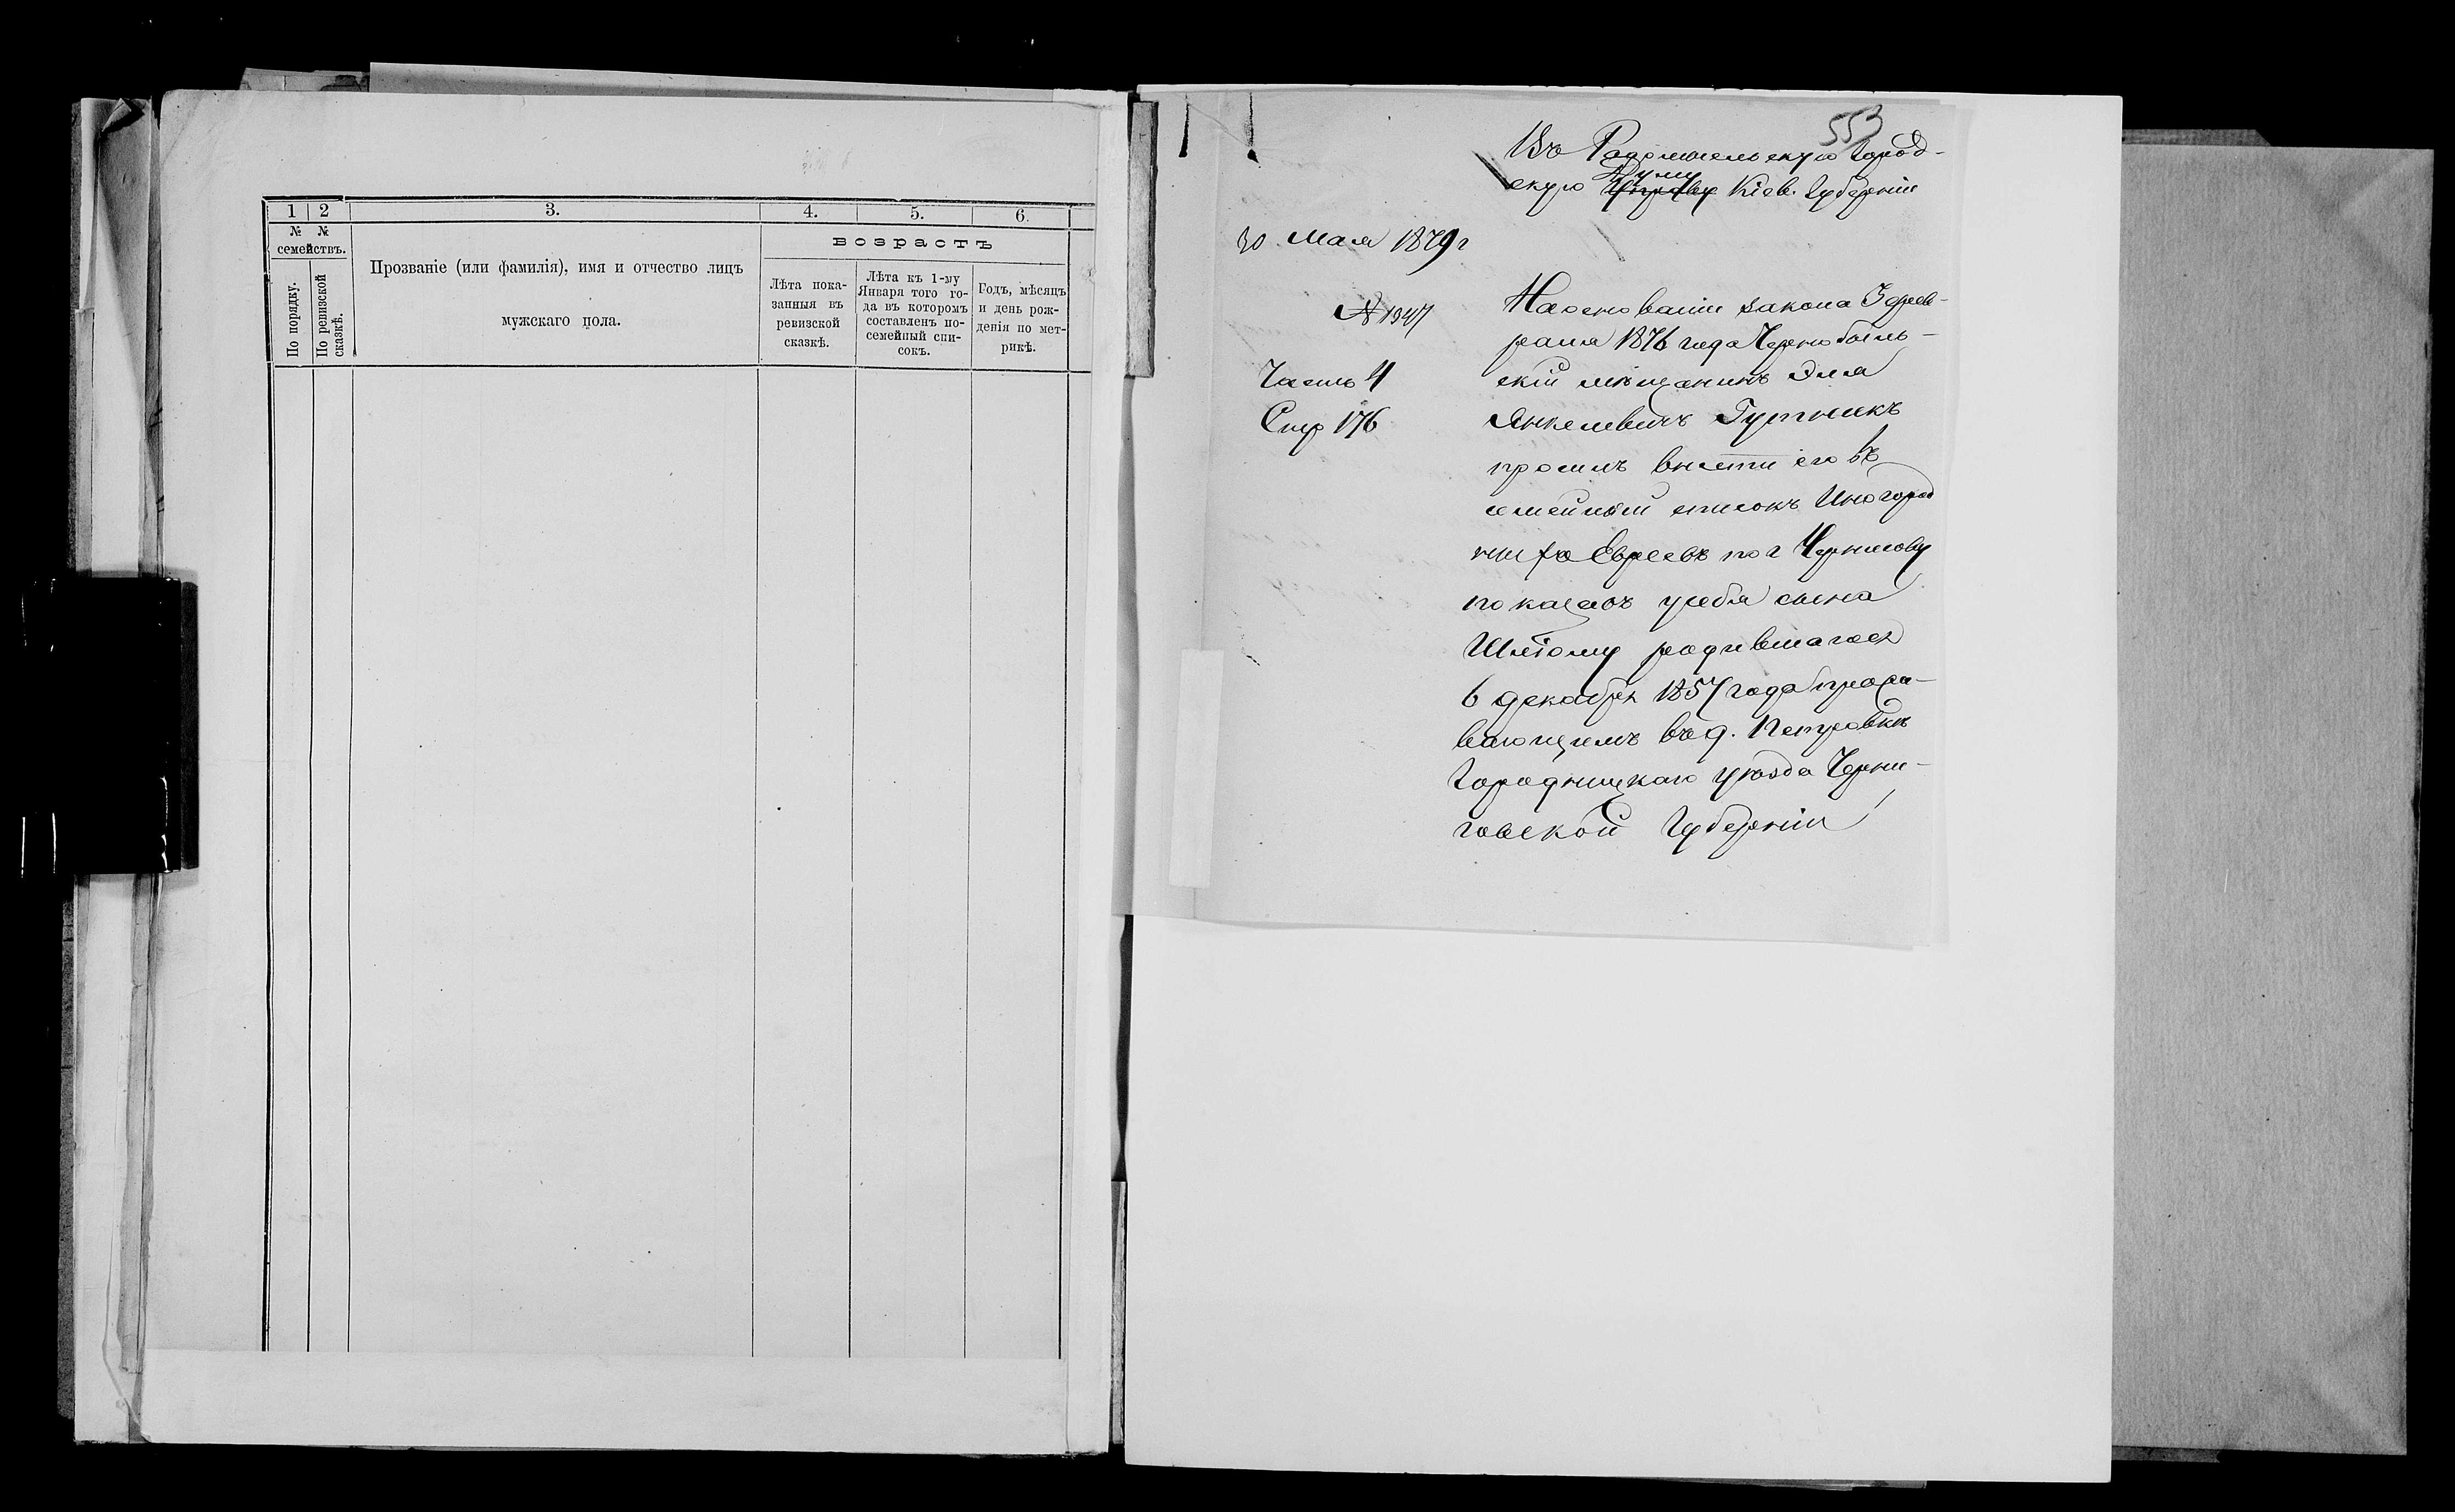 1 2 3. 4. 5. 6.
№ №
семействъ.
По порядку.
По ревизской
сказкѣ.
Прозваніе (или фамилія), имя и отчество лицъ
мужскаго пола.
возрастъ
Лѣта пока-
занныя въ
ревизской
сказкѣ.
Лѣта къ 1-му
Января того го-
да въ которомъ
составленъ по-
семейный спи-
сокъ.
Годъ, мѣсяцъ
и день рож-
денія по мет-
рикѣ.
553
Въ Радомысльскую Город-
Думу
скую Управу Кіев. Губерніи
30 Мая 1879 г
№ 1947
Часть 4
Стр 176
На основаніи закона 3 Февр-
раля 1876 года Чернобыль-
скій мѣщанинъ Эля
Янкелевичъ Гутникъ
просилъ внести его въ
семейный списокъ Иногород
нихъ Евреевъ по г Чернигову
показавъ у себя сына
Шліому родившагося
6 декабря 1857 года прожи-
вающимъ въ д. Петровкѣ
Городницкаго уѣзда Черни-
говской Губерніи